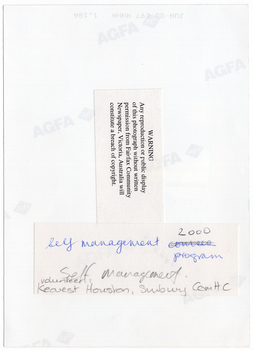 AGFA
WARNING
Any reproduction or public display
of this photograph without written
permission from Fairfax Community
Newspaper, Victoria, Australia will
constitute a breach of copyright.
2000
self management
program
Self Management.
volunteer
Houston, Sunbury Com H C